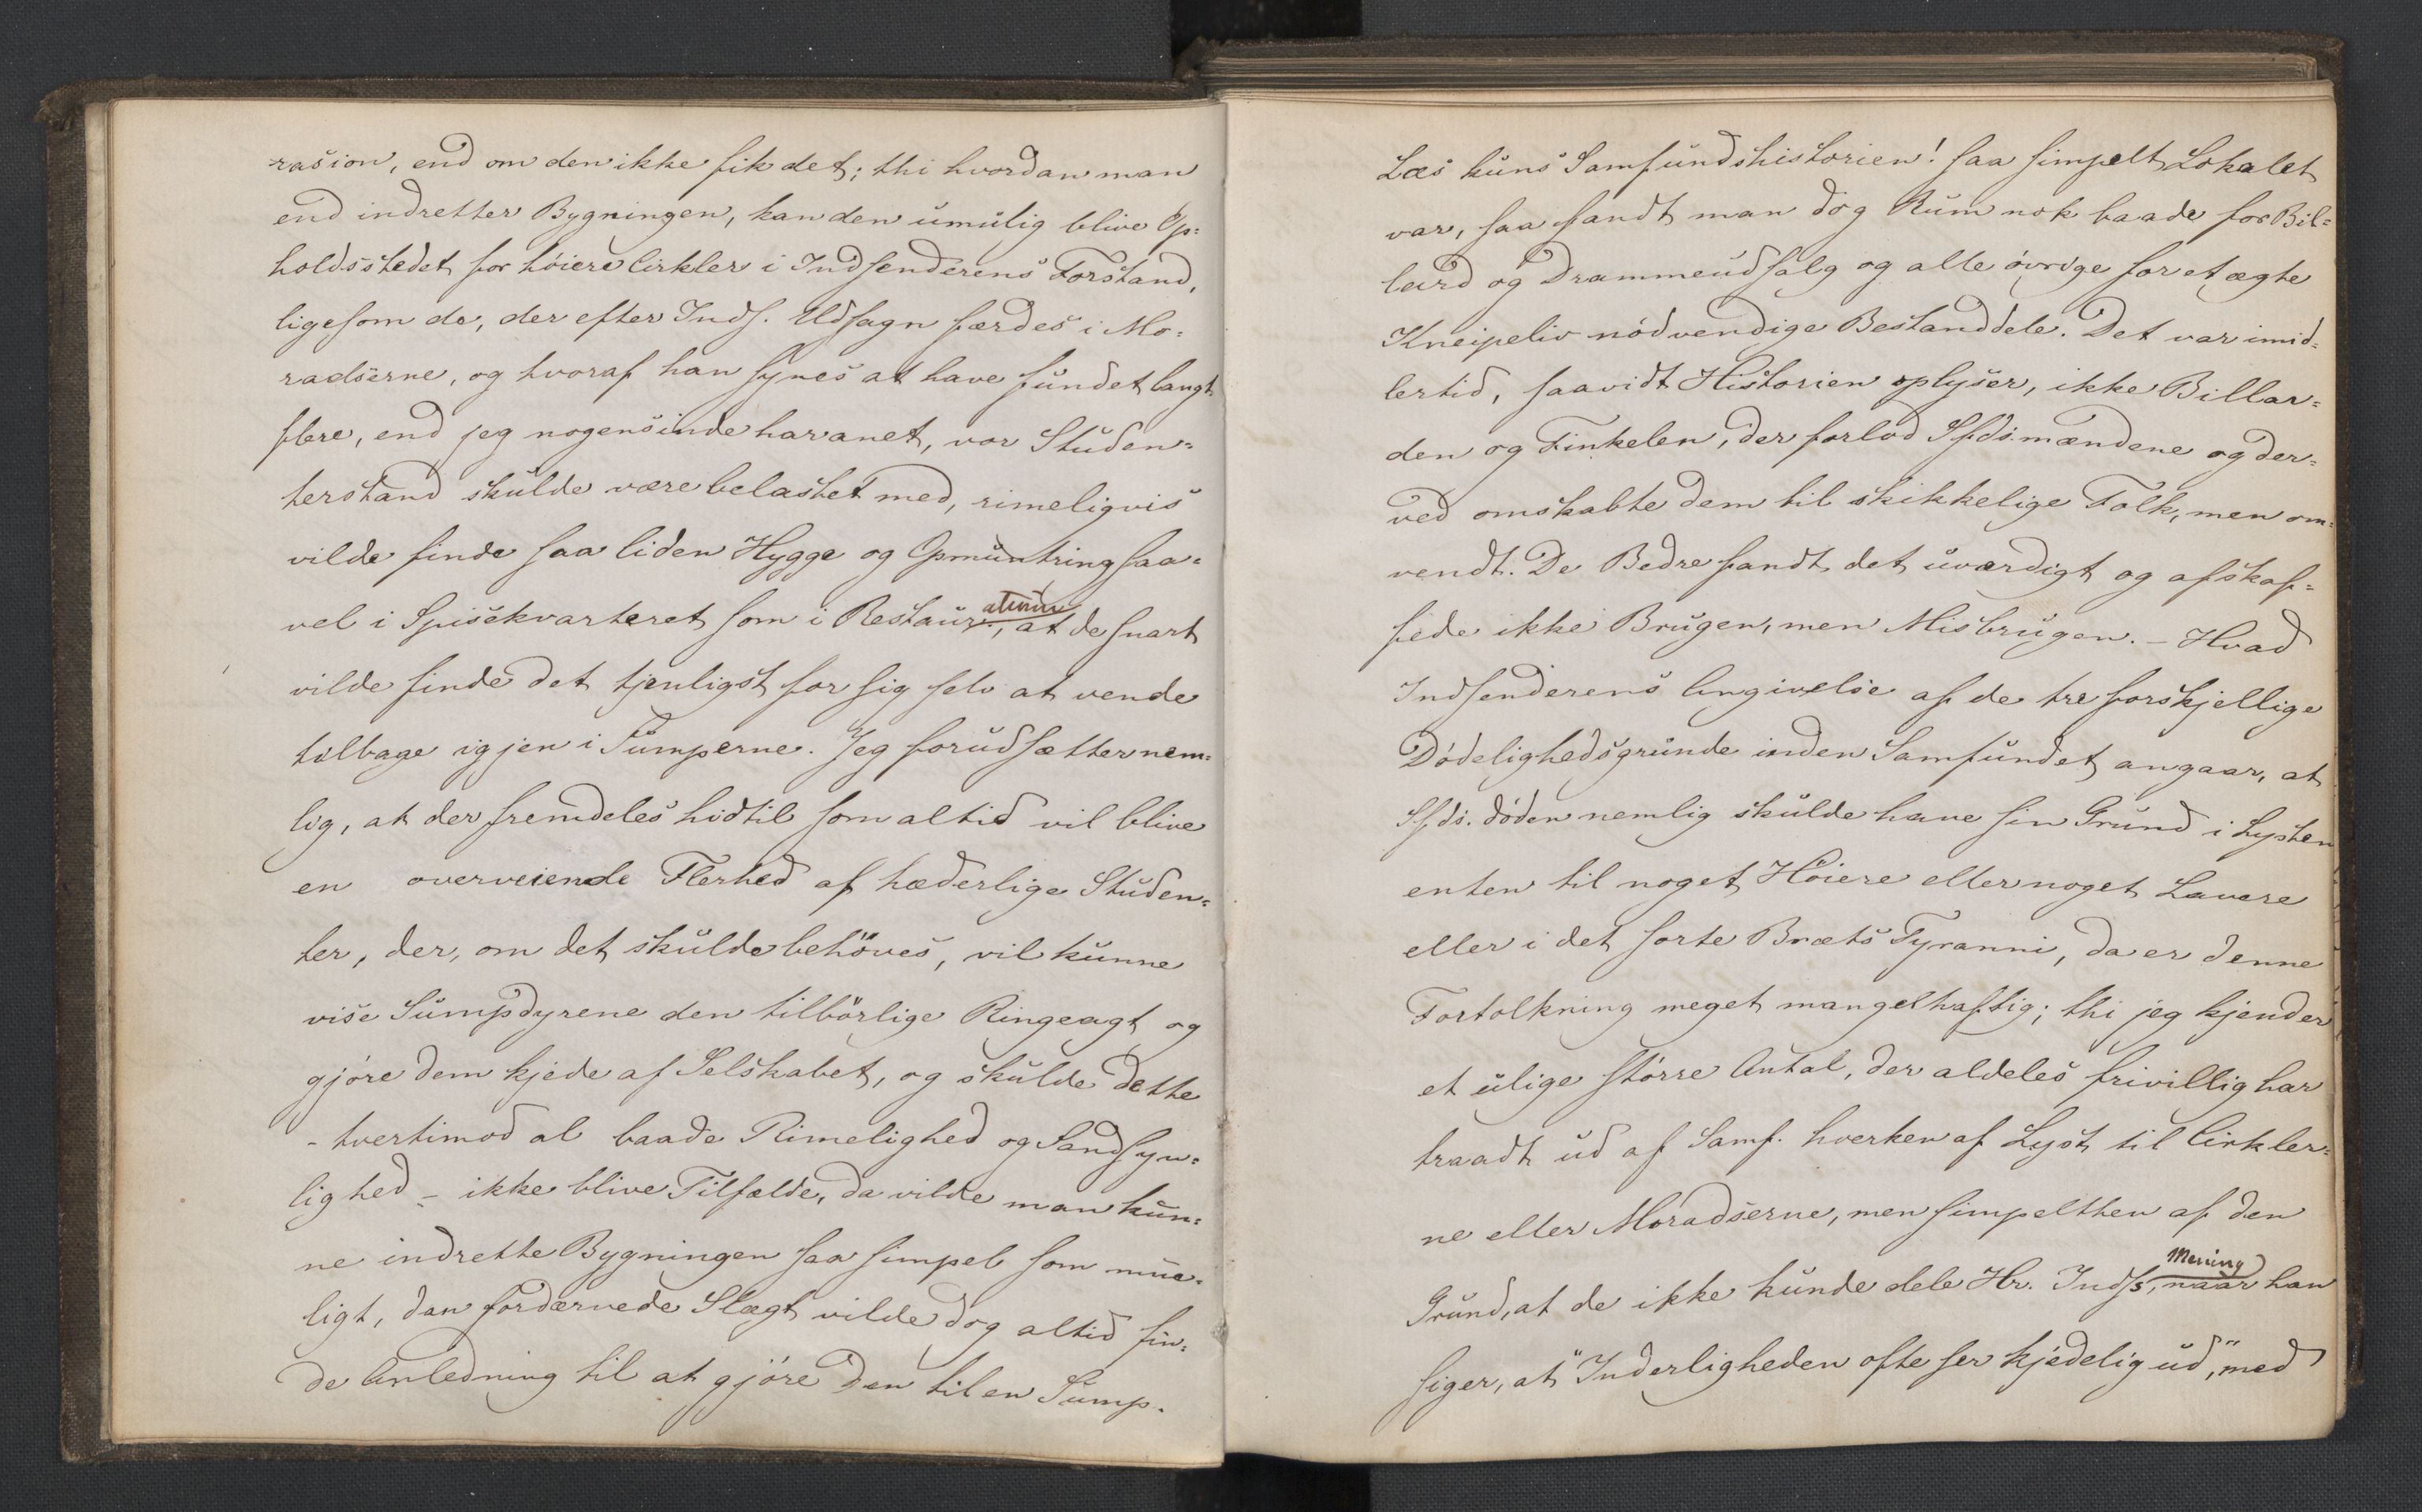 rasion, end om den ikke fik det; thi hvordan man
end indretter Bygningen, kan den umulig blive Op=
holdsstedet for höiere Cirkler i Indsenderens Forstand,
ligesom de, der efter Inds. Udsagn færdes i Mo=
radserne, og hvoraf han synes at have fundet langt
flere, end jeg nogensinde har anet, vor Studen=
terstand skulde være belastet med, rimeligvis
vilde finde saa liden Hygge og Opmuntring saa=
vel i Spisekvarteret som i Restaur., at de snart
vilde finde det tjenligst for sig selv at vende
tilbage igjen i Sumperne. Jeg forudsætter nem=
lig, at der fremdeles hidtil som altid vil blive
en overveiende Flerhed af hæderlige Studen=
ter, der, om det skulde behöves, vil kunne
vise Sumpdyrene den tilbörlige Ringeagt og
gjöre dem kjede af Selskabet, og skulde dette
- tvertimod al baade Rimelighed og Sandsyn=
lighed - ikke blive Tilfælde, da vilde man kun=
ne indrette Bygningen saa simpel som mue=
ligt, den fordærvede Slægt vilde dog altid fin=
de Anledning til at gjöre den til en Sump.
Læs kuns Samfundshistorien! saa simpelt Lokalet
var, saa fandt man dog Rum nok baade for Bil=
lard og Drammeudsalg og alle övrige for et ægte
Kneipeliv nödvendige Bestanddele. Det var imid=
lertid, saavidt Historien oplyser, ikke Billar=
den og Finkelen, der forlod Sfds.mændene og der=
ved omskabte dem til skikkelige Folk, men om=
vendt. De Bedre fandt det uværdigt og afskaf=
fede ikke Brugen, men Misbrugen. - Hvad
Indsenderens Angivelse af de tre forskjellige
Dödelighedsgrunde inden Samfundet angaar, at
Sfds. döden nemlig skulde have sin Grund i Lysten
enten til noget Höiere eller noget Lavere
eller i det sorte Bræts Tyranni, da er denne
Fortolkning meget mangelhaftig; thi jeg kjender
et ulige större Antal, der aldeles frivillig har
traadt ud af Samf. hverken af Lyst til Cirkler=
ne eller Moradserne, men simpelthen af den
Mening
Grund, at de ikke kunde dele Hr. Inds.s, naar han
siger, at "Inderligheden ofte ser kjedelig ud", med